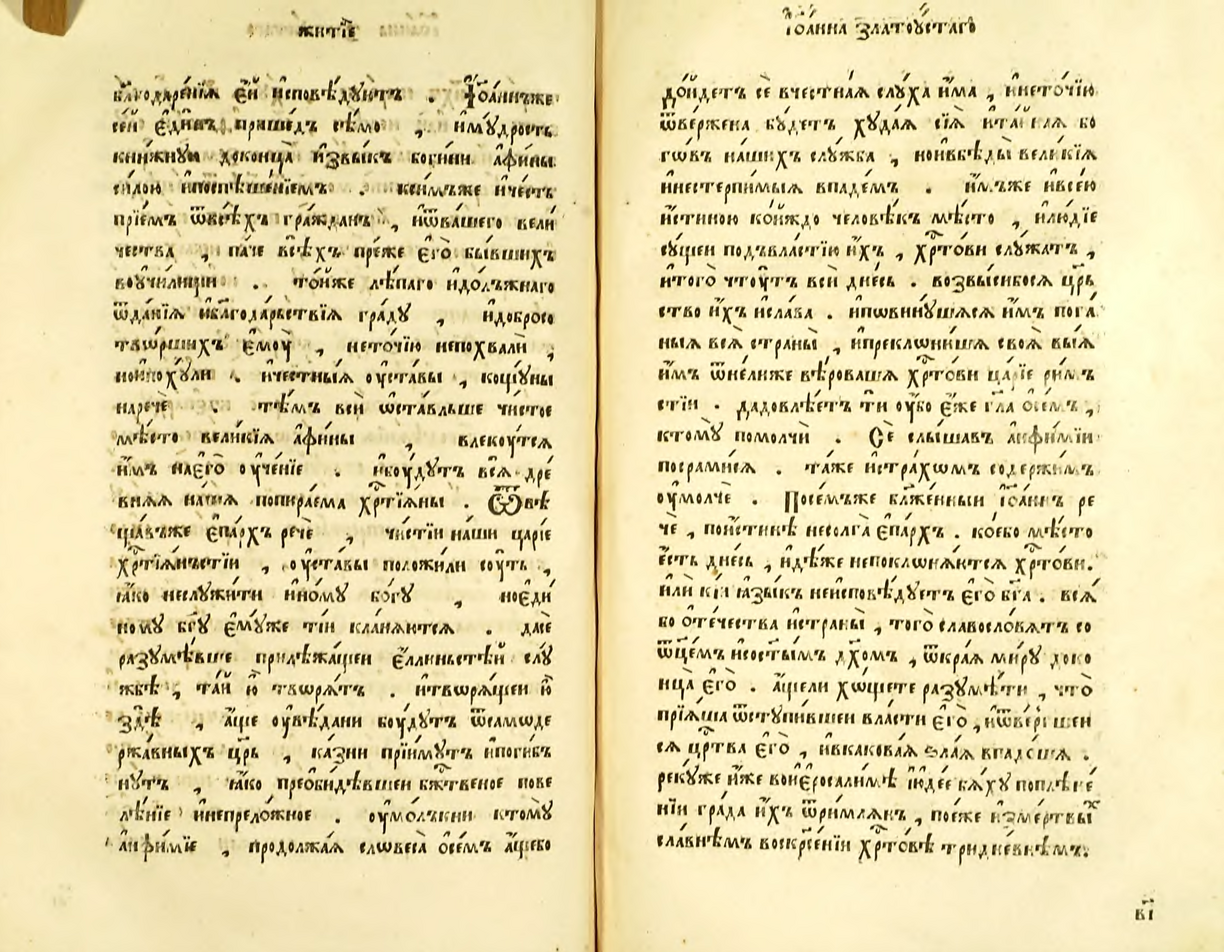 житїе
благодаренїя ѐй исповѣдуютъ . Їоаннъже
сей ѐдинъ пришедъ сѣмо , имꙋдрость
книжную доконца̀ извыкъ богини афины
силою ипоспѣшенїемъ . ксимъже ичесть
прїемъ ѿвсѣхъ гражданъ , иѿвашего вели
чества , паче всѣхъ преже ѐго̀ бывшихъ
воучилищи . тойже лѣпаго идолъжнаго
ѿданїя иблагодарьствїя градꙋ , идобросо
твѡршихъ ѐмоу̀ , неточїю непохвали ,
ноипохꙋли . ичестныя оуставы , кощꙋны
наречѐ . тѣмъ вси ѡставльше чистое
мѣсто великїя афины , влекоутся
имъ наѐго̀ оученїе . ибоудутъ вся дре
вняя наша попираема хрⷭ҇тїяны . Ѿвѣ
щавъже ѐпархъ речѐ , чистїи наши царїе
хрⷭ҇тїянъстїи , оуставы положили соуть ,
ꙗко неслꙋжити иномꙋ богꙋ , ноѐди
номꙋ бг҃ꙋ ѐмꙋже тїи кланяются . дасе
разꙋмѣвше прилѣжащеи ѐллиньстѣй слꙋ
жбѣ , тай ю̀ творятъ . итворящеи ю̀
здѣ , аще оувѣдани боудꙋтъ ѿсамоде
ржавныхъ црь , казни прїимꙋтъ ипогиб
нꙋтъ , ꙗко преобидѣвшеи бжⷭ҇твеное пове
лѣнїе инепреложное . оумолъкни ктомꙋ
анфимїе , продолжая словеса̀ ѻсемъ ащебо
Їоанна златоꙋстаго
дойдетъ сѐ вчестная слꙋха има , инеточїю
ѿвержена бꙋдетъ хꙋдая сїя итайная бо
гѡвъ нашихъ слꙋжба , ноивбѣды великїя
инестерпимыя впадемъ . имъже ивсею
истиною койждо человѣкъ мѣсто , илюдїе
сꙋщеи подъвластїю ихъ , хрⷭ҇тови слꙋжатъ ,
итого̀ чтоутъ вси днесь . возвысибося црь
ство ихъ ислава . иповинꙋшася имъ пога
ныя вся страны̀ , ипреклониша своя выя
имъ ѿнелиже вѣроваша хрⷭ҇тови царїе рим
стїи . дадовлѣетъ ти оубо ѐже гл҃а ѻсемъ ,
ктомꙋ помолчи . Сѐ слышавъ анфимїи
посрамися . таже истрахомъ содержимъ
оумолчѐ . Посемъже блаженный їоаннъ ре
чѐ , поистинѣ несолга̀ ѐпархъ . коебо мѣсто
ѐсть днесь , идѣже непоклоняются хрⷭ҇тови .
или кїй ꙗзыкъ неисповѣдꙋетъ ѐго̀ бг҃а . вся
бо отечества истраны̀ , того̀ славословятъ со
ѿцемъ исостымъ дх҃омъ , ѿкрая мирꙋ доко
нца̀ ѐго̀ . ащели хощете разꙋмѣти , что̀
прїяша ѿстꙋпившеи власти ѐго̀ , иѿвергшеи
ся црⷭ҇тва ѐго̀ , ивкаковая ѕлая впадоша .
рекꙋже иже воиѐросалимѣ їюдее бяхꙋ поплѣне
нїи града ихъ ѿримлянъ , поеже измертвыⷯ
славнѣмъ воскрⷭ҇сенїи хрⷭ҇товѣ тридневнѣмъ .
в҃і